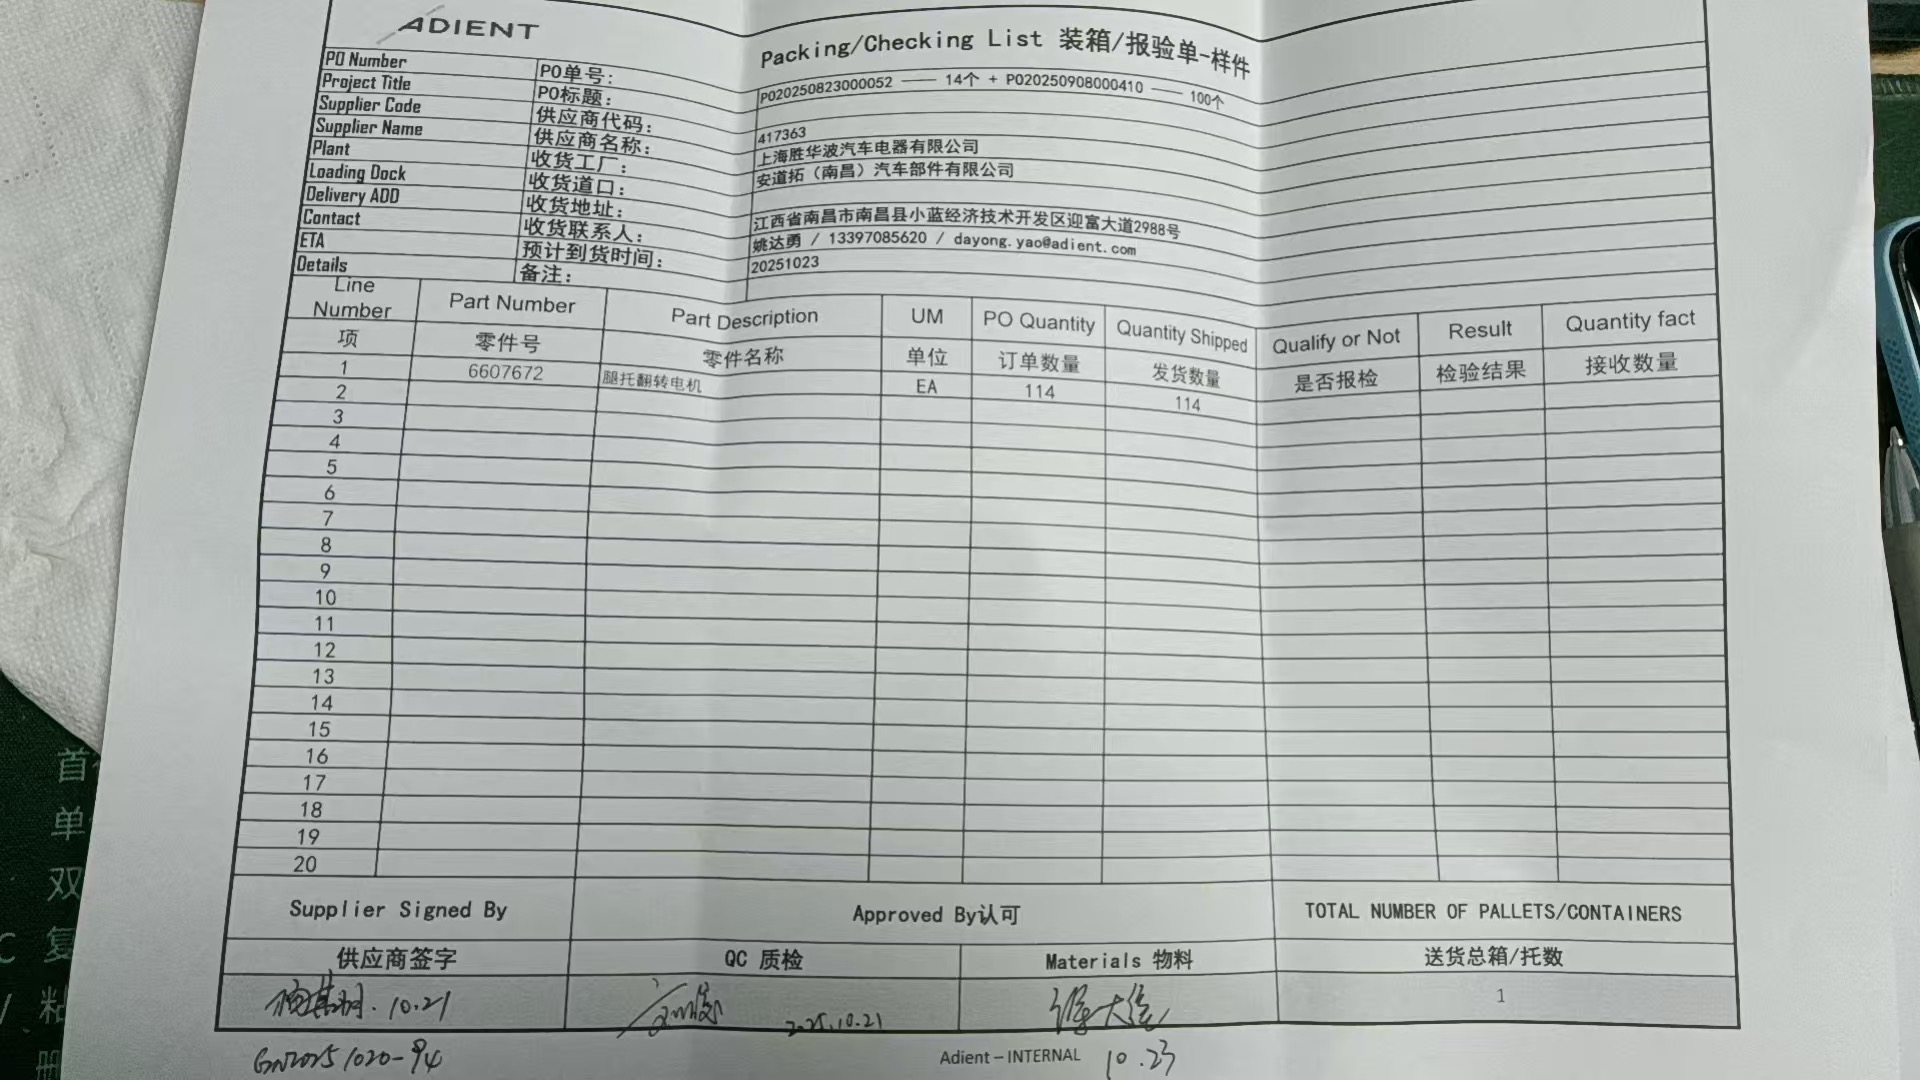 ADIENT
Packing/Checking List 装箱/报验单-样件
PO Number PO单号: PO20250823000052 —— 14个 + PO20250908000410 —— 100个
Project Title PO标题:
Supplier Code 供应商代码: 417363
Supplier Name 供应商名称: 上海胜华波汽车电器有限公司
Plant 收货工厂: 安道拓（南昌）汽车部件有限公司
Loading Dock 收货道口:
Delivery ADD 收货地址: 江西省南昌市南昌县小蓝经济技术开发区迎富大道2988号
Contact 收货联系人: 姚达勇 / 13397085620 / dayong.yao@adient.com
ETA 预计到货时间: 20251023
Details 备注:
Line Number Part Number Part Description UM PO Quantity Quantity Shipped Qualify or Not Result Quantity fact
项 零件号 零件名称 单位 订单数量 发货数量 是否报检 检验结果 接收数量
1 6607672 腿托翻转电机 EA 114 114
2
3
4
5
6
7
8
9
10
11
12
13
14
15
16
17
18
19
20
Supplier Signed By Approved By认可 TOTAL NUMBER OF PALLETS/CONTAINERS
供应商签字 QC 质检 Materials 物料 送货总箱/托数
10.21 2025.10.21 1
GN20251020-94 Adient – INTERNAL 10.23
首
单
双
C 复
粘
删